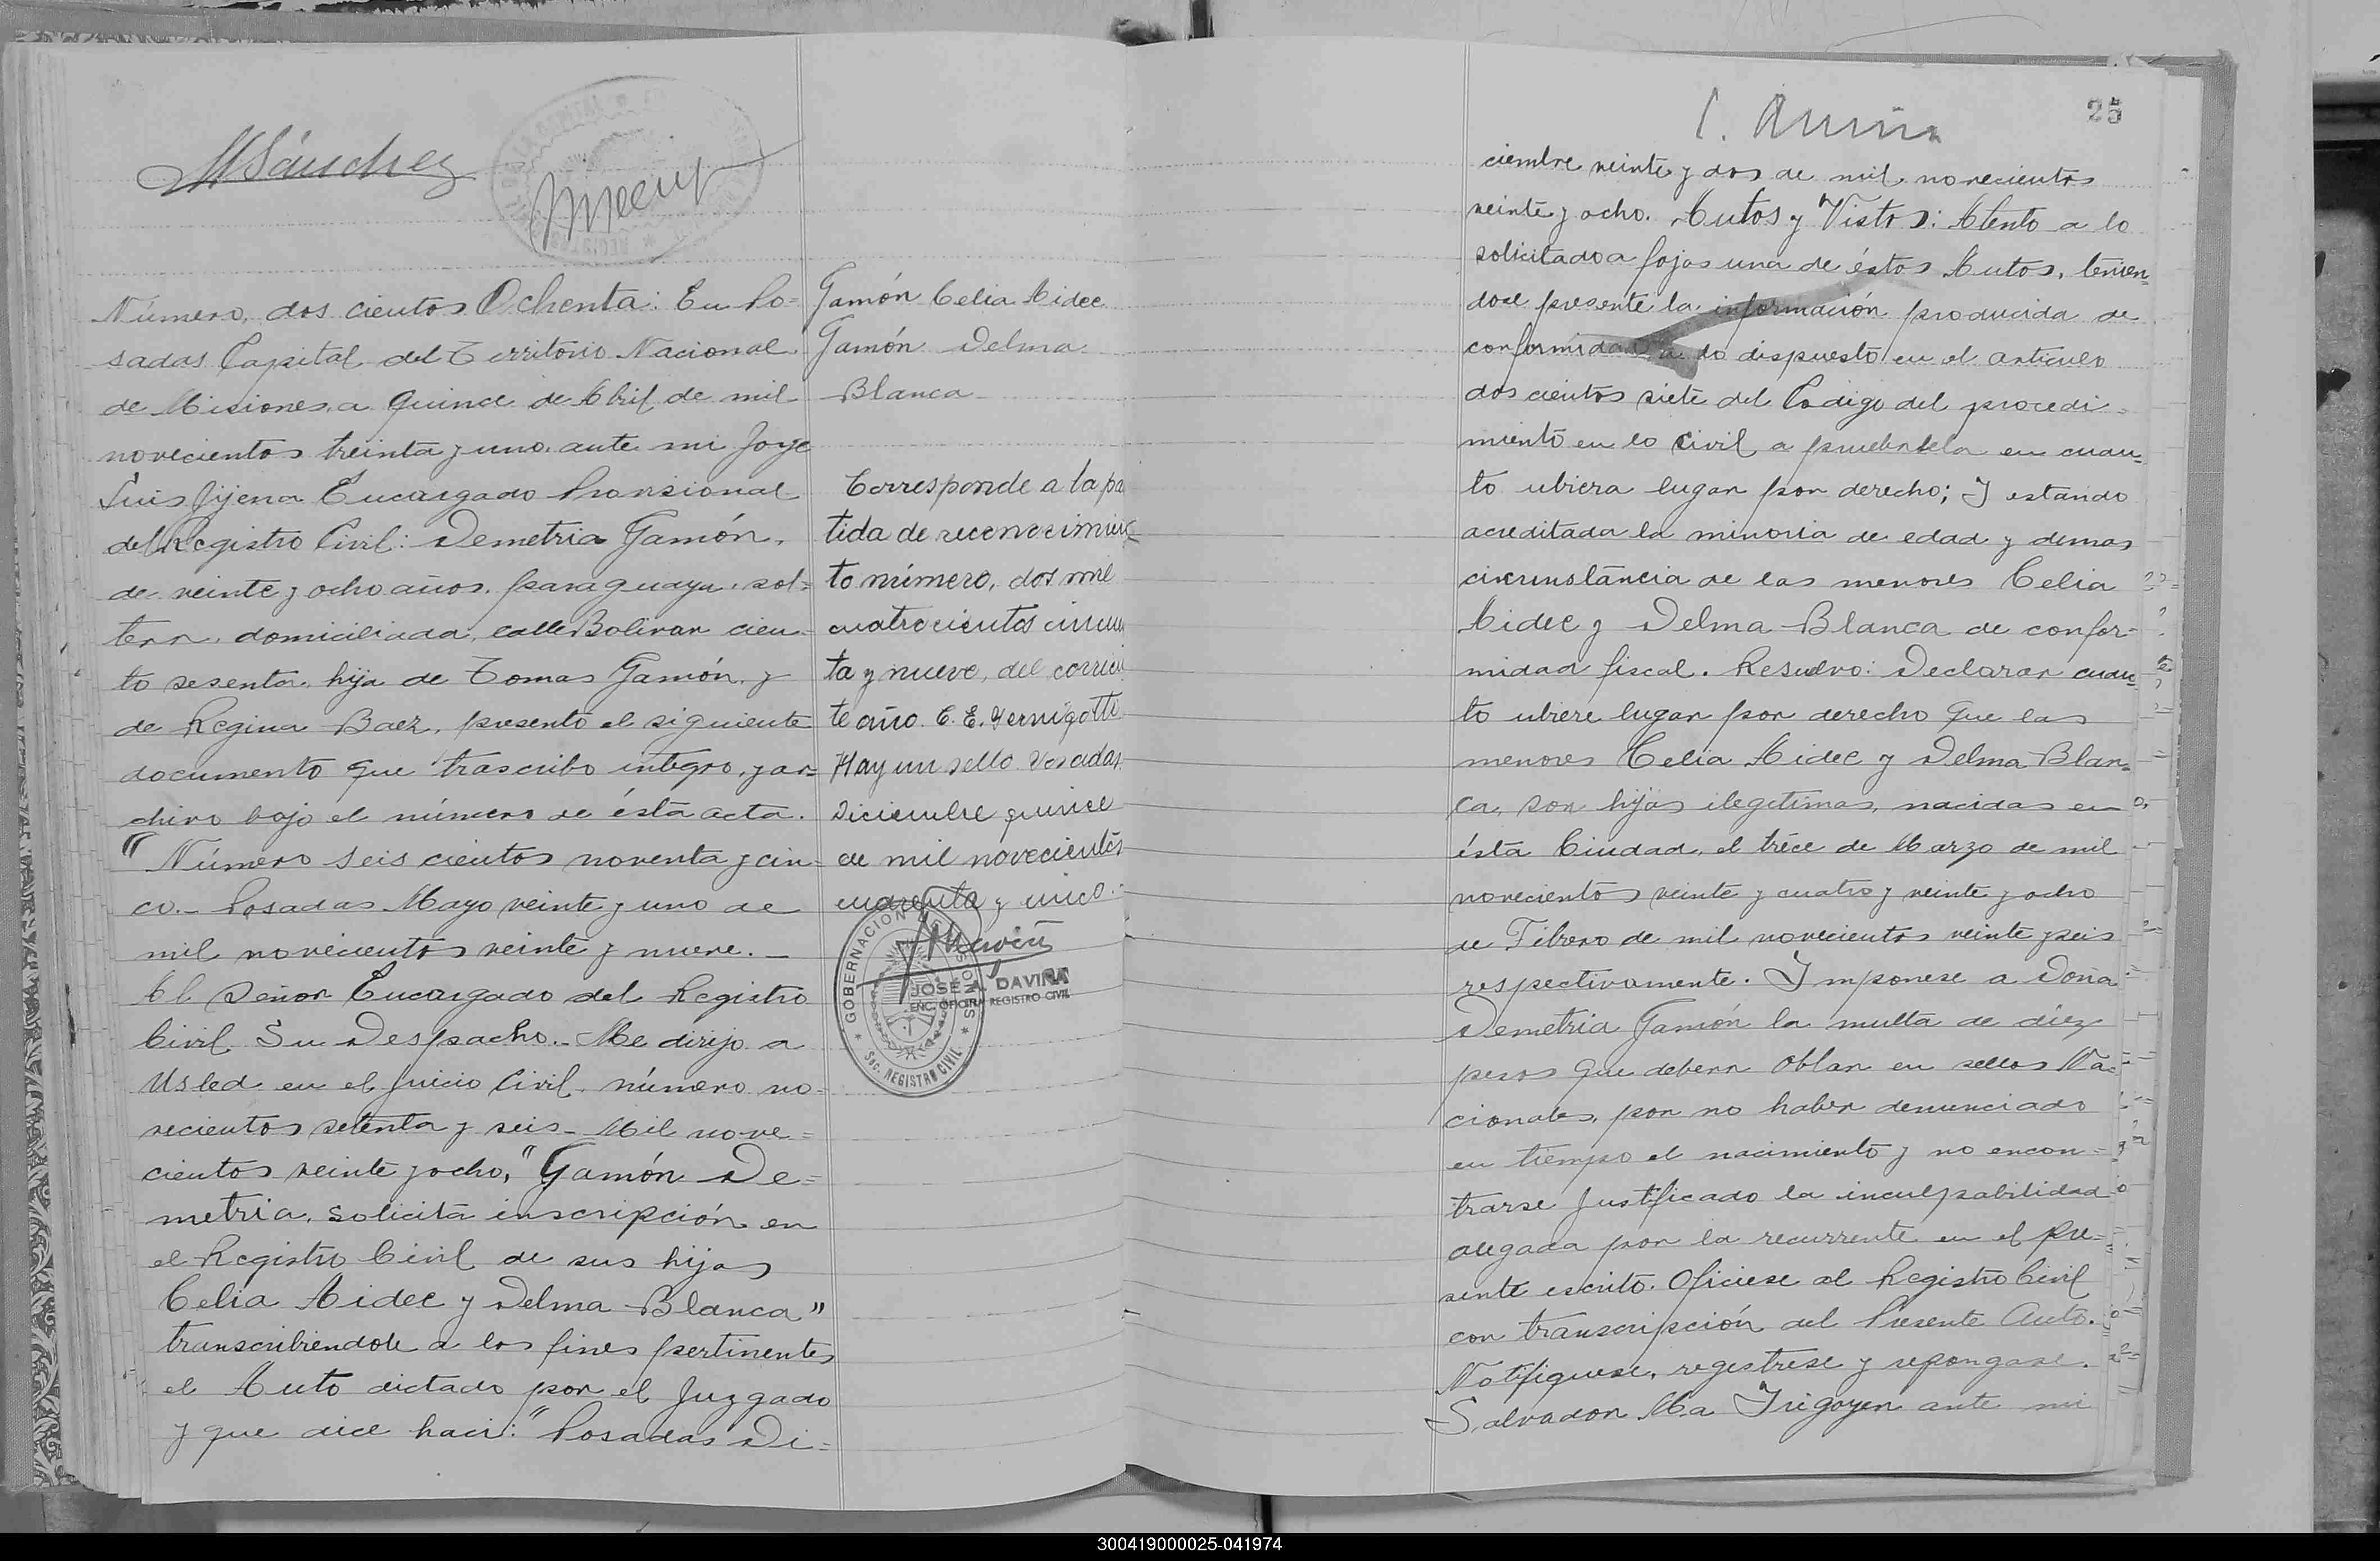 MSánchez
Número, dos cientos Ochenta: En Po=
sadas Capital del Territorio Nacional
de Misiones, a quince de Abril de mil
novecientos treinta y uno, ante mi Jorje
Luis Jijena Encargado Provisional
del Registro Civil: Demetria Gamón,
de veinte y ocho años, paraguaya, sol=
tera, domiciliada, calle Bolivar cien-
to sesenta, hija de Tomas Gamón, y
de Regina Baez, presentó el siguiente
documento que trascribo integro, y ar=
chivo bajo el número de ésta acta.
"Número seis cientos noventa y cin=
co.- Posadas Mayo veinte y uno de
mil novecientos veinte y nueve.-
Al Señor Encargado del Registro
Civil Su Despacho.- Me dirijo a
Usted en el juicio Civil, número no=
vecientos setenta y seis- Mil nove=
cientos veinte y ocho, "Gamón De=
metria, solicita inscripción en
el Registro Civil de sus hijas
Celia Aidee y Delma Blanca"
transcribiendole a los fines pertinentes
el Auto dictado por el Juzgado
y que dice haci: "Posadas Di=
Gamón Celia Aidee
Gamón Delma
Blanca
Corresponde a la par
tida de reconocimien
to número, dos mil
cuatrocientos cincuen
ta y nueve, del corrien
te año. C. E. Vernigotti
Hay un sello. Posadas
Diciembre quince
de mil novecientos
cuarenta y cinco.-
GOBERNACION DE MISIONES
JOSE A. DAVIÑA
ENC. OFICINA REGISTRO CIVIL
* Sec. REGISTRO CIVIL *
25
ciembre veinte y dos de mil novecientos
veinte y ocho. Autos y Vistos: Atento a lo
solicitado a fojas una de éstos Autos, tenien=
dose presente la información producida de
conformidad a lo dispuesto en el articulo
dos cientos siete del Codigo del procedi=
miento en lo Civil a pruebasela en cuan=
to ubiera lugar por derecho; Y estando
acreditada la minoria de edad y demas
circunstancia de las menores Celia
Aidee y Delma Blanca de confor=
midad fiscal. Resuelvo: Declarar cuan=
to ubiere lugar por derecho que las
menores Celia Aidee y Delma Blan=
ca, son hijas ilegitimas, nacidas en
ésta Ciudad, el trece de Marzo de mil
novecientos veinte y cuatro y veinte y ocho
de Febrero de mil novecientos veinte y seis
respectivamente. Imponese a Doña
Demetria Gamón la multa de diez
pesos que debera oblar en sellos Na=
cionales, por no haber denunciado
en tiempo el nacimiento y no encon=
trarse justificado la inculpabilidad
alegada por la recurrente en el pre=
sente escrito. Oficiese al Registro Civil
con transcripción del Presente Auto.
Notifiquese, registrese y repongase.
Salvador Ma Irigoyen ante mi
300419000025-041974